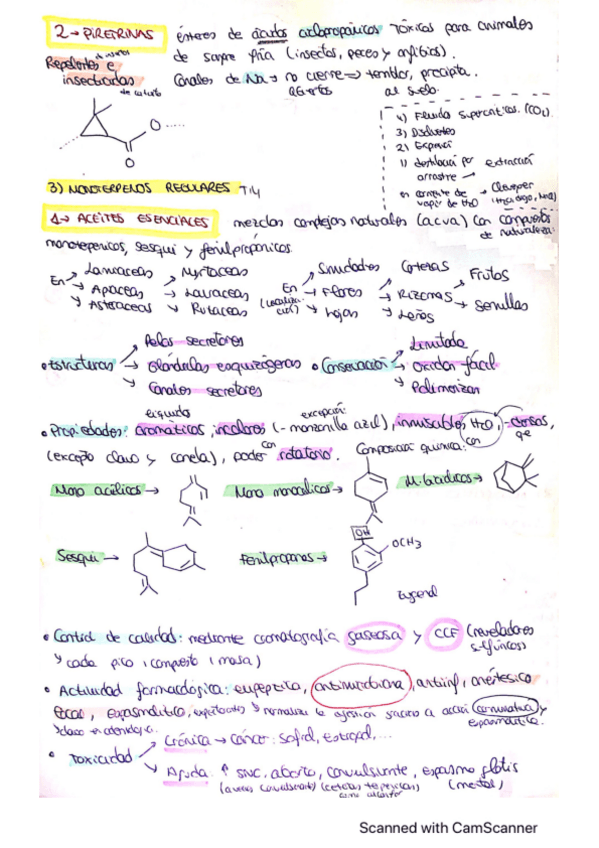 2→ PIRETRINAS ésteres de ácidos ciclopropánicos tóxicos para animales
de sangre fría (insectos, peces y anfibios).
Repelentes e insecticidas
de insectos
de contacto
Canales de Na → no cierre ⇒ temblor, precipita
abiertos al suelo.
O
O
4) Fluidos supercríticos. (CO2)
3) Disolventes
2) Expresión
1) destilación por extracción
arrastre →
en corriente de vapor de H2O → Clevenger
3) MONOTERPENOS REGULARES T14
1→ ACEITES ESENCIALES mezclas complejas naturales (acva) con compuestos
de naturaleza
monoterpénicos, sesqui y fenilpropánicos.
En → Lamiaceas → Myrtaceas
→ Apiaceas → Lauraceas
→ Asteraceas → Rutaceas
En (localización) → Sumidades → Cortezas → Frutos
→ Flores → Rizomas → Semillas
→ Hojas → Leños
• Estructuras → Pelos secretores
→ Glándulas esquizógenas
→ Canales secretores
• Conservación → Limitada
→ Oxidan fácil
→ Polimerizan
• Propiedades: líquidos aromáticos, incoloros (- manzanilla azul), inmiscibles H2O, -densas, que
excepción:
(excepto clavo y canela), poder con rotatorio. Composición química: con
Mono acíclicos →
Mono monocíclicos →
M. bicíclicos →
Sesqui →
Fenilpropanos →
OH
OCH3
Eugenol
• Control de calidad: mediante cromatografía gaseosa y CCF (reveladores
s-fúricos)
↳ cada pico 1 compuesto 1 masa)
• Actividad farmacológica: eupéptica, antimicrobiana, antiinf, anestésico
local, espasmolítico, expectorantes
↳ clavo en odontología.
carminativa y
espasmolítica.
• Toxicidad → Crónica → Cáncer: safrol, estragol,...
→ Aguda: ↑ SNC, aborto, convulsivante, espasmo glotis
(mentol)
Scanned with CamScanner